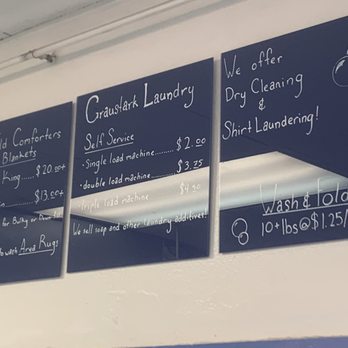 ld Comforters
Blankets
King ..... $20.00+
$13.00+
for Bulky or Down
wash Area Rugs
Graustark Laundry
Self Service
• Single load machine.......... $2.00
• double load machine.......... $3.25
• triple load machine $4.50
We sell soap and other laundry additives!
We offer
Dry Cleaning
&
Shirt Laundering!
Wash & Fold
10+lbs@$1.25/